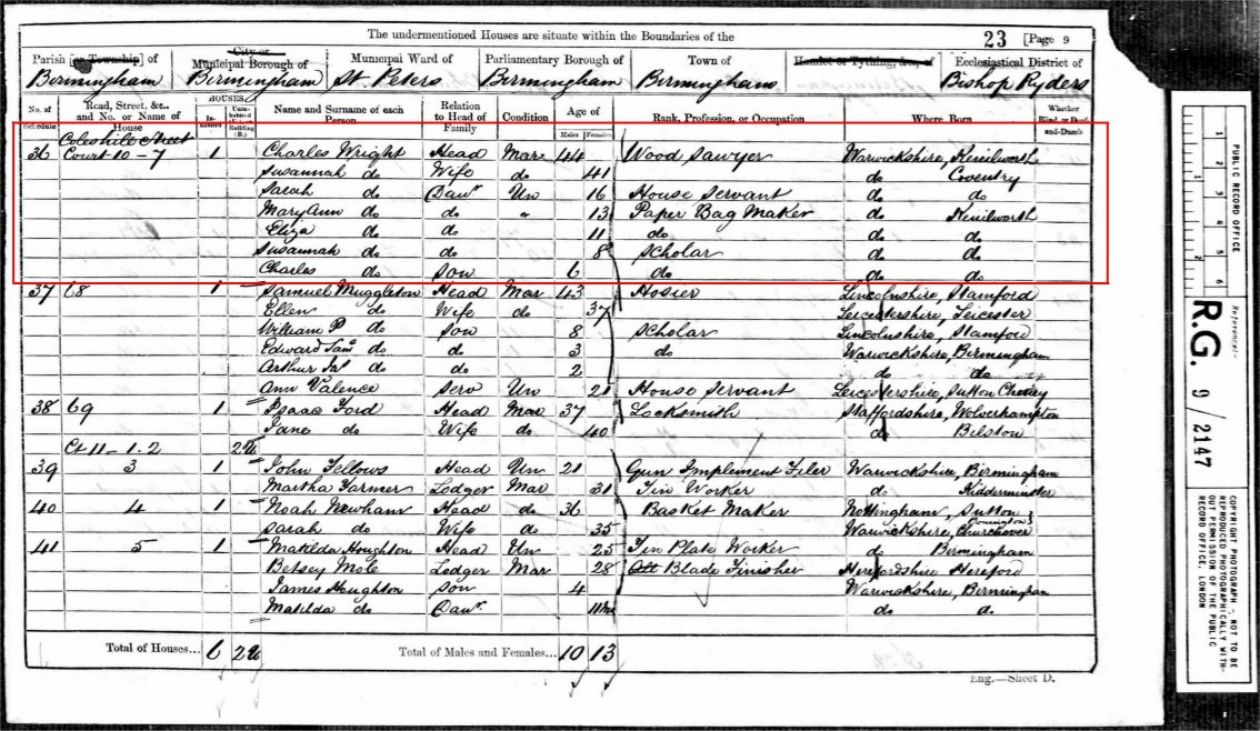 The undermentioned Houses are situate within the Boundaries of the
23 [Page 9
Parish [or Township] of City or Municipal Borough of Municipal Ward of Parliamentary Borough of Town of Hamlet or Tything, &c., of Ecclesiastical District of
Birmingham Birmingham St. Peters Birmingham Birmingham Bishop Ryders
No. of Schedule Road, Street, &c., and No. or Name of House HOUSES Inhabited Uninhabited Building (B.) Name and Surname of each Person Relation to Head of Family Condition Age of Males Females Rank, Profession, or Occupation Where Born Whether Blind, or Deaf-and-Dumb
Coleshile Street
36 Court 10-7 1 Charles Wright Head Mar 44 Wood Sawyer Warwickshire, Kenilworth
Susannah do Wife do 41 do Coventry
Sarah do Daur Un 16 House Servant do do
Mary Ann do do " 13 Paper Bag Maker do Kenilworth
Eliza do do 11 do do do
Susannah do do 8 Scholar do do
Charles do Son 6 do do do
37 68 1 Samuel Muggleton Head Mar 43 Hosier Lincolnshire, Stamford
Ellen do Wife do 37 Leicestershire, Leicester
William P do Son 8 Scholar Lincolnshire, Stamford
Edward Saml do do 3 do Warwickshire, Birmingham
Arthur do do 2 do do
Ann Valence Serv Un 21 House Servant Leicestershire, Sutton Cheney
38 69 1 Isaac Ford Head Mar 37 Locksmith Staffordshire, Wolverhampton
Jane do Wife do 40 do Bilston
Ct 11-1.2 2u
39 3 1 John Fellows Head Un 21 Gun Implement Filer Warwickshire, Birmingham
Martha Farmer Lodger Mar 31 Tin Worker do Kidderminster
40 4 1 Noah Newham Head do 36 Basket Maker Nottingham, Sutton Bonnington
Sarah do Wife do 35 Warwickshire, Churchover
41 5 1 Matilda Houghton Head Un 25 Tin Plate Worker do Birmingham
Betsey Mole Lodger Mar 28 Blade Finisher Herefordshire Hereford
James Houghton Son 4 Warwickshire, Birmingham
Matilda do Daur do
Total of Houses... 6 2u Total of Males and Females... 10 13
Eng.—Sheet D.
PUBLIC RECORD OFFICE
1 2 3 4 5 6
Reference:-
R.G. 9/2147
COPYRIGHT PHOTOGRAPH - NOT TO BE REPRODUCED PHOTOGRAPHICALLY WITHOUT PERMISSION OF THE PUBLIC RECORD OFFICE, LONDON